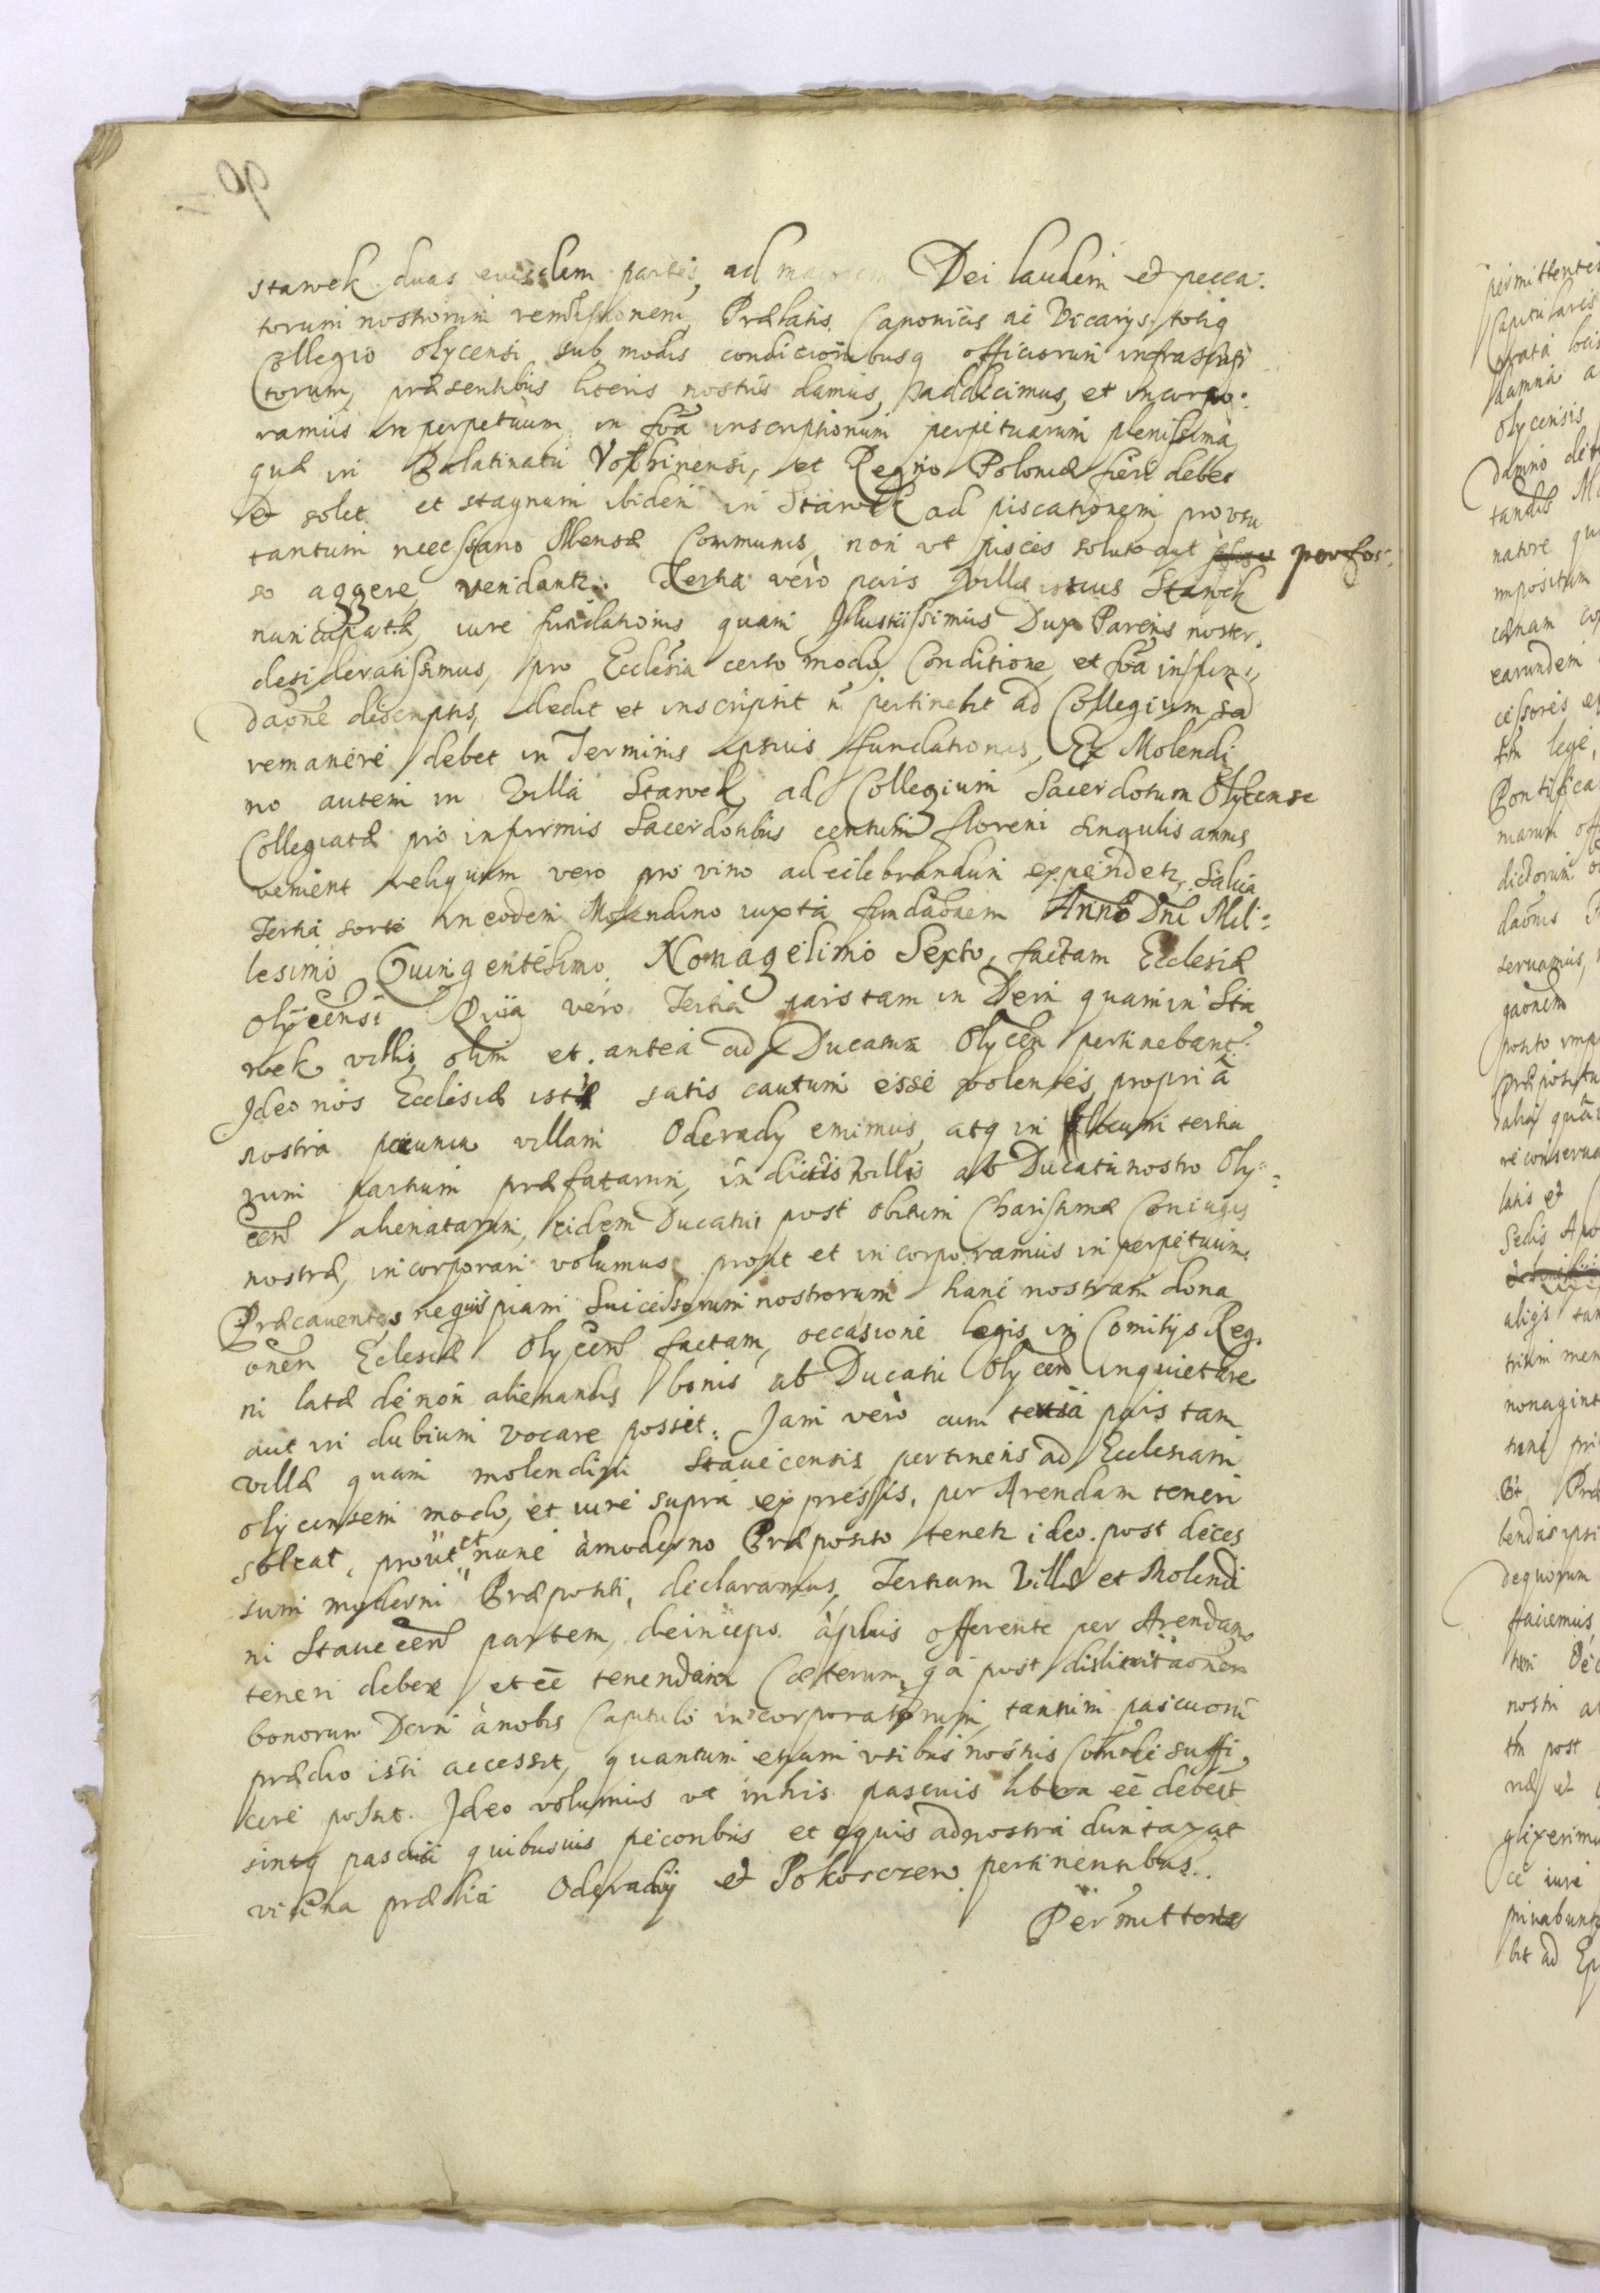 stawek duas eiusdem partes, ad maiorem Dei laudem et pecca:
torum nostrorum remissionem, Prælatis Canonicis ac Vicarys totiq
Collegio olycensi sub modis condicionibusq officiorum infrascrip
torum, præsentibus literis nostris damus, addicimus, et incorpo:
ramus in perpetuum in foã inscriptionum perpetuarum plenissima,
quæ in Palatinatu Volhinensi, et Regno Poloniæ fieri debet
et solet et stagnum ibidem in Stawek ad piscationem pro vsu
tantum necessario Mensæ Communis, non vt pisces soluto aut perfos:
so aggere, vendantr. Tertia vero pars villæ istius Stawek
nuncupatæ, iure fundationis quam Illustrissimus Dux Parens noster,
desideratissimus, pro Ecclesia certo modo, Conditione, et foã in fun:
daōne descriptis, dedit et inscripsit ñ pertinebit ad Collegium sed
remanere debet in Terminis ipsius fundationis, Ex Molendi
no autem in Villa Stawek, ad Collegium Sacerdotum Olycense
Collegiatæ pro infirmis Sacerdotibus centum floreni singulis annis
venient reliquum vero pro vino ad celebrandum expendetr, Salua
Tertia sorte in eodem Molendino iuxta fundaōnem Anno Dni Mil:
lesimo Quingentesimo Nonagesimo Sexto, factam Ecclesiæ
Olycensi Quia vero Tertia pars tam in Dern quam in Sta
wek villis olim et antea ad Ducatum Olycen pertinebant.
Ideo nos Ecclesiæ isti satis cautum esse volentes, propria
nostra pecunia villam Oderady emimus, atq in locum tertia
rum partium præfatarum, in dictis villis ab Ducatu nostro Oly:
cen alienatarum, eidem Ducatui post obitum Charissimæ Coniugis
nostræ, incorporari volumus prout et incorporamus in perpetuum.
Præcauentes nequispiam Successorum nostrorum hanc nostram dona
onem Eclesiæ Olycen factam, occasione legis in Comitys Reg.
ni latæ de non alienandis bonis ab Ducatu Olycen inquietare
aut in dubium vocare possit. Jam vero cum tertia pars tam
villæ quam molendini Stauecensis pertinens ad Ecclesiam
olycensem modo, et iure supra expressis, per Arendam teneri
soleat, prout et nunc à moderno Præposito tenetr ideo post deces
sum moderni Præpositi, declaramus, Tertiam Villæ et Molendi
ni Stauecen partem, deinceps à plus offerente per Arendam
teneri debere et eē tenendam Cæterum, qa post dislimitaonem
bonorum Dern à nobis Capitulo incorporatorum, tantum pascuorū
prædio isti accessit, quantum etiam vsibus nostris Comode suffi,
cere possit. Ideo volumus vt in his pascuis libera eē debeat
sintq pascua quibusuis pecoribus et equis ad nostra duntaxat
vicina prædia Oderady et Pokosczew pertinentibus.
Permittentes